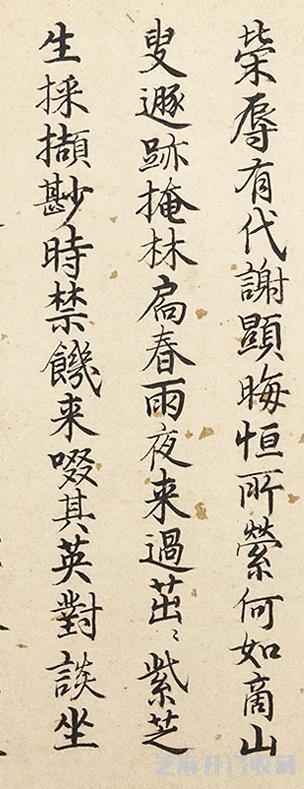 榮辱有代謝顯晦恒所縈何如商山
叟遯跡掩林扃春雨夜来過茁〻紫芝
生採擷尠時禁饑来啜其英對談坐
芝麻开门收藏